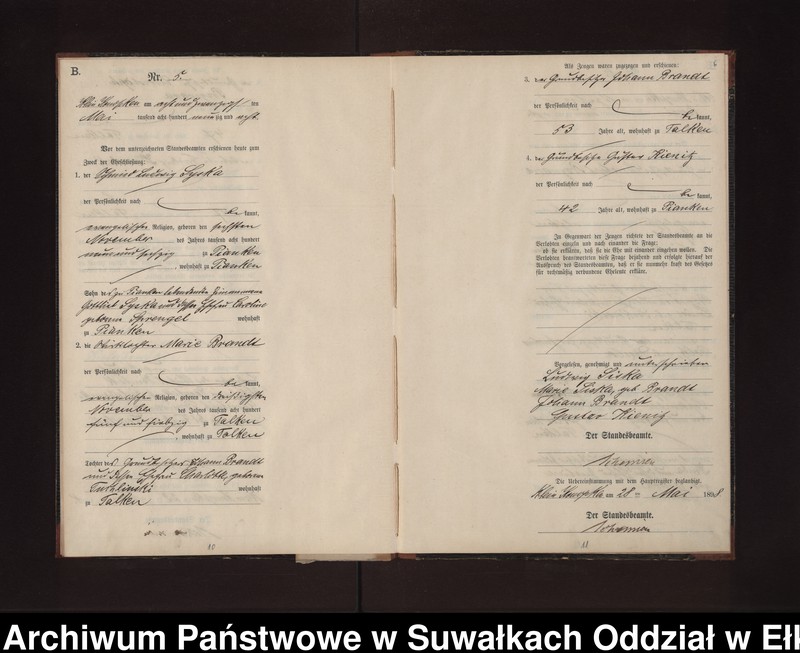 B.
Nr. 5
am acht und zwanzigsten
Mai tausend acht hundert neunzig und acht
Vor dem unterzeichneten Standesbeamten erschienen heute zum
Zweck der Eheschließung:
1. der Schmied Ludwig Syska
der Persönlichkeit nach
be kannt,
evangelischer Religion, geboren den sechsten
November des Jahres tausend acht hundert
neun und sechzig zu Pianken
, wohnhaft zu Pianken
Sohn des zu Pianken lebenden
Gottlieb Syska und dessen Ehefrau Caroline
geborene Sprengel wohnhaft
zu Pianken
2. die Wirthstochter Marie Brandt
der Persönlichkeit nach
be kannt,
evangelischer Religion, geboren den dreißigsten
November des Jahres tausend acht hundert
fünf und siebzig zu Talken
, wohnhaft zu Talken
Tochter des Grundbesitzers Johann Brandt
und dessen Ehefrau Charlotte, geborene
wohnhaft
zu Talken
10
6
Als Zeugen waren zugezogen und erschienen:
3. der Grundbesitzer Johann Brandt
der Persönlichkeit nach
be kannt,
53 Jahre alt, wohnhaft zu Talken
4. der Grundbesitzer Gustav Kienitz
der Persönlichkeit nach
be kannt,
42 Jahre alt, wohnhaft zu Pianken
In Gegenwart der Zeugen richtete der Standesbeamte an die
Verlobten einzeln und nach einander die Frage:
ob sie erklären, daß sie die Ehe mit einander eingehen wollen. Die
Verlobten beantworteten diese Frage bejahend und erfolgte hierauf der
Ausspruch des Standesbeamten, daß er sie nunmehr kraft des Gesetzes
für rechtmäßig verbundene Eheleute erkläre.
Vorgelesen, genehmigt und unterschrieben
Ludwig Siska
Marie Siska, geb Brandt
Johann Brandt
Gustav Kienitz
Der Standesbeamte.
Die Uebereinstimmung mit dem Hauptregister beglaubigt.
am 28 ten Mai 1898
Der Standesbeamte.
11
Archiwum Państwowe w Suwałkach Oddział w Ełk